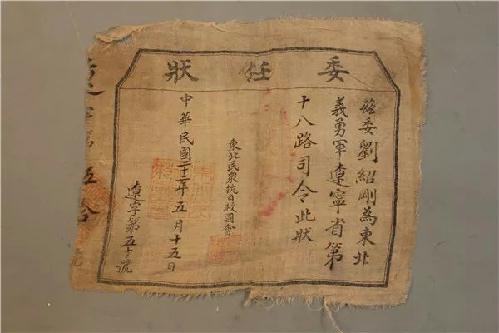 委任狀
茲委劉紹剛為東北
義勇軍遼寧省第
十八路司令此狀
東北民眾抗日救國會
中華民國二十二年五月十五日
遼字第五十號
字第伍拾